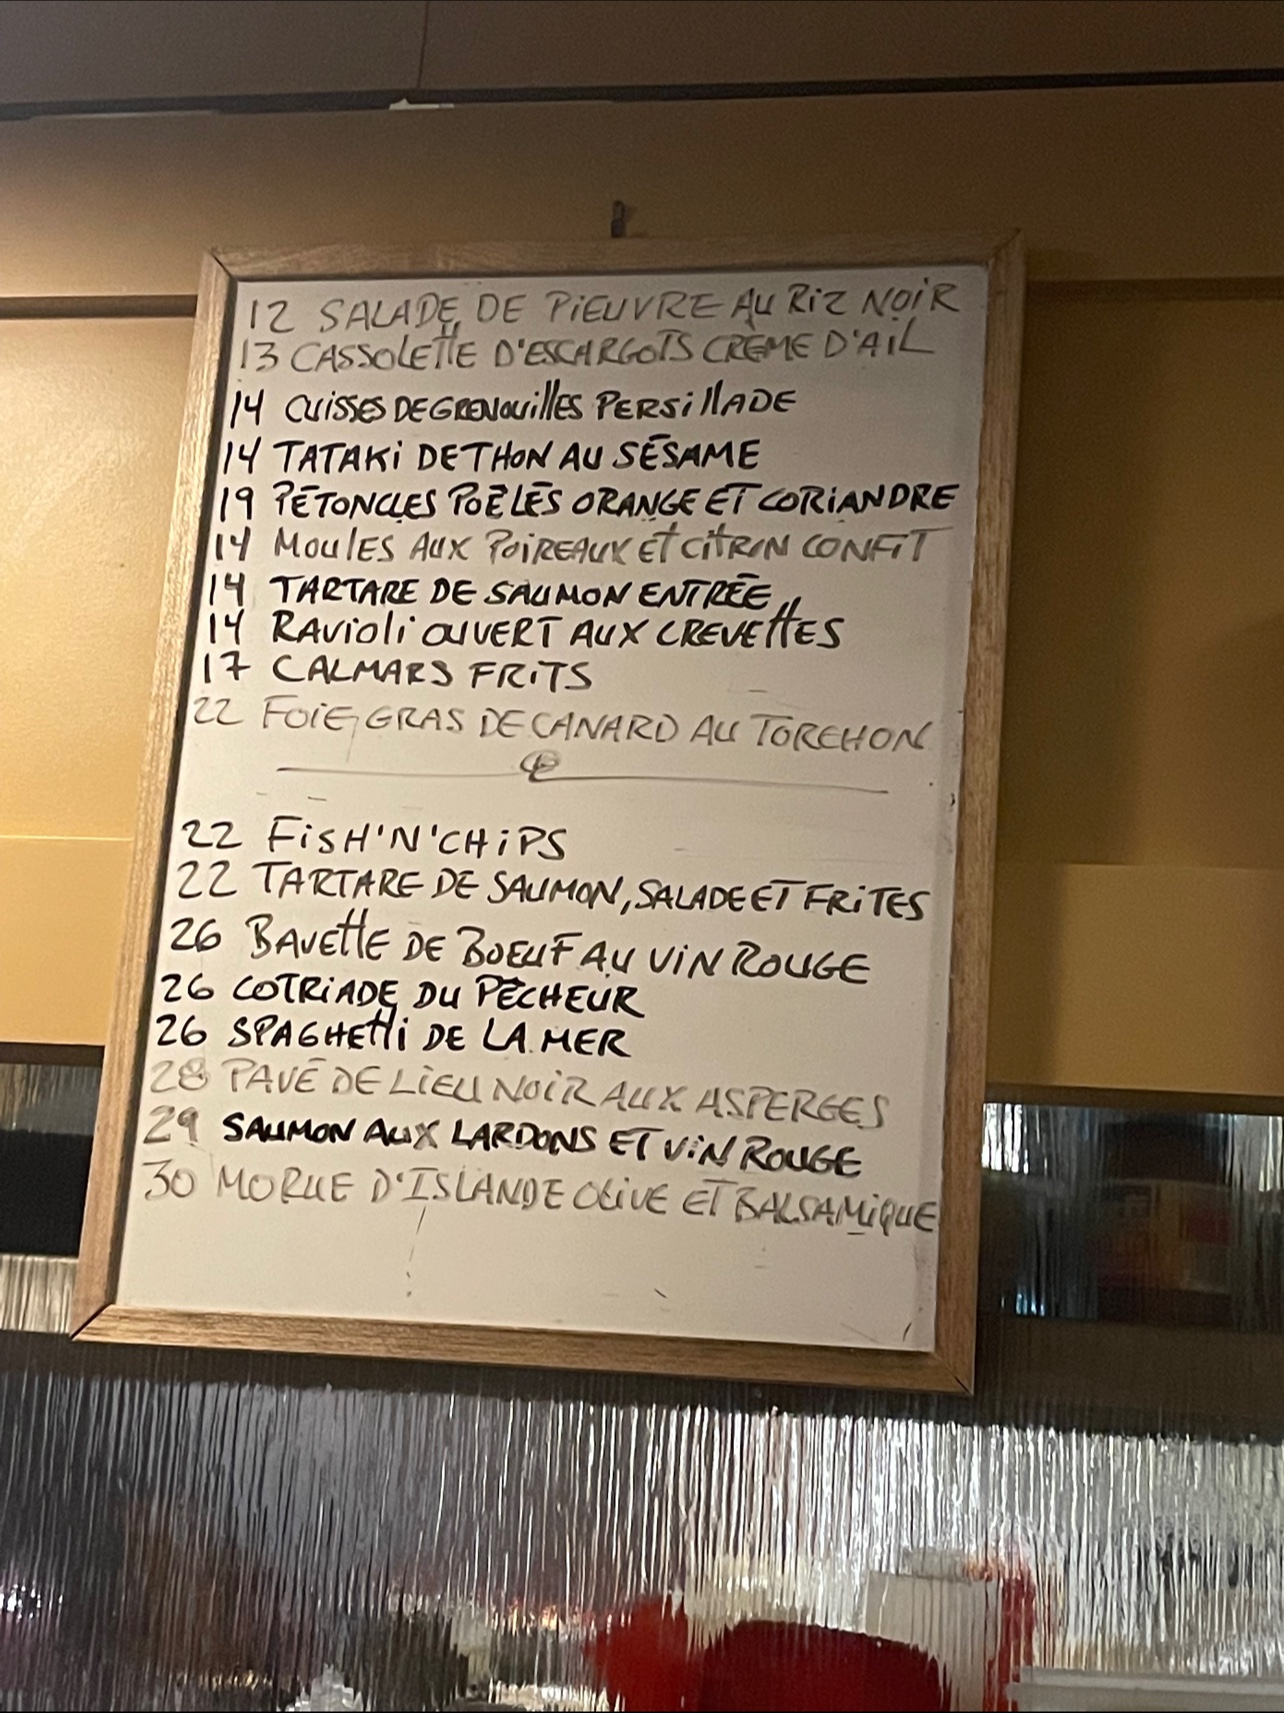 12 SALADE DE PiEUVRE AU RiZ NOiR
13 CASSOLETTE D'ESCARGOTS CRÈME D'AiL
14 CUISSES DE GRENOUILLES PERSILLADE
14 TATAKi DE THON AU SÉSAME
19 PÉTONCLES POÊLÉS ORANGE ET CORiANDRE
14 MOULES AUX POiREAUX ET CiTRON CONFiT
14 TARTARE DE SAUMON ENTRÉE
14 RAViOLi OUVERT AUX CREVETTES
17 CALMARS FRiTS
22 FOiE GRAS DE CANARD AU TORCHON
22 FiSH'N'CHiPS
22 TARTARE DE SAUMON, SALADE ET FRiTES
26 BAVETTE DE BOEUF AU ViN ROUGE
26 COTRiADE DU PÊCHEUR
26 SPAGHETTi DE LA MER
28 PAVÉ DE LiEU NOiR AUX ASPERGES
29 SAUMON AUX LARDONS ET ViN ROUGE
30 MORUE D'ISLANDE OLiVE ET BALSAMiQUE